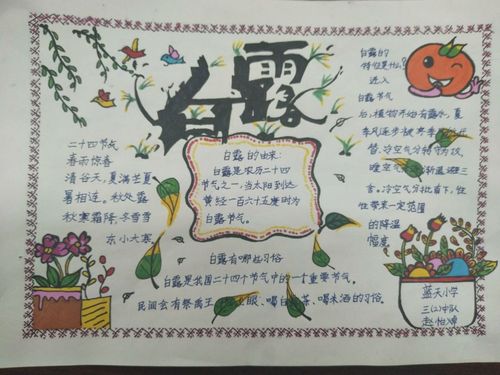 白露
二十四节气
春雨惊春
清谷天，夏满芒夏
暑相连。秋处露
秋寒霜降，冬雪雪
冬小大寒
白露的由来：
白露是农历二十四
节气之一，当太阳到达
黄经一百六十五度时为
白露节气。
白露的
特征是什么？
进入
白露节气
后，植物开始有露水，夏
季风逐步被冬季风所代
替，冷空气分转守为攻，
暖空气
言，冷空气分批南下，往
往带来一定范围
的降温
幅度
白露有哪些习俗
白露是我国二十四个节气中的一个重要节气，
民间会有祭禹王 眼、喝白 茶、喝米酒的习俗
蓝天小学
三(2)中队
赵怡